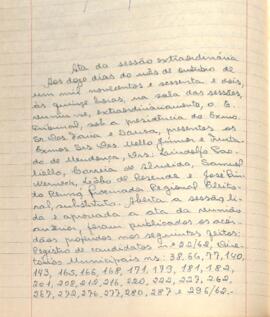 Ata da sessão extraordinária
Aos doze dias do mês de outubro de
um mil novecentos e sessenta e dois,
às quinze horas, na sala das sessões,
reuniu-se, extraordinariamente, o E.
Tribunal, sob a presidência do Exmo.
Sr. Des. Faria e Sousa, presentes os
Exmos. Srs. Des. Mello Júnior e
de Mendonça, Drs. Lindolfo
Correia de Almeida, Samuel
Werneck, Leão de Resende e José
do Procurador Regional Eleito-
ral, substituto. Aberta a sessão, li-
da e aprovada a ata da reunião
anterior, foram publicados os acór-
dãos proferidos nos seguintes feitos:
Registro de candidatos nº 22/62,
Municipais ns: 38, 64, 77, 140,
143, 165, 166, 168, 171, 173, 181, 182,
201, 208, 212, 216, 220, 222, 227, 262,
267, 272, 276, 277, 280, 287 e 295/62.-